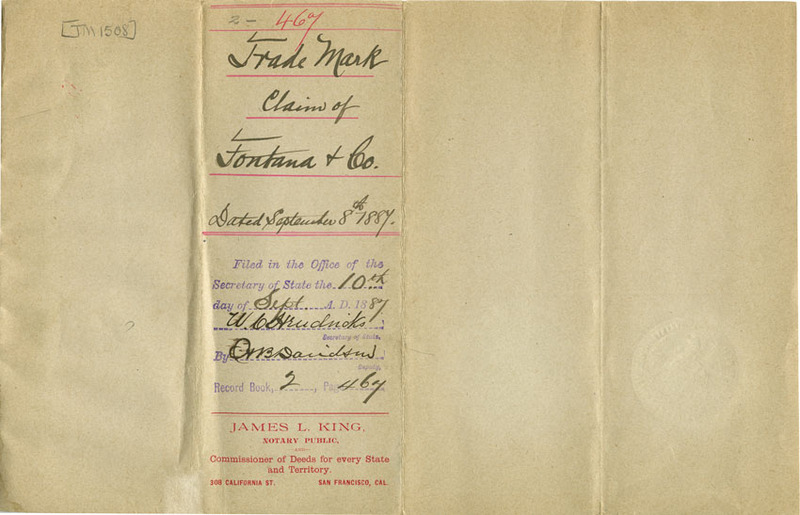 [TM 1508]
2 - 467
Trade Mark
Claim of
Fontana & Co.
Dated September 8th 1887.
Filed in the Office of the
Secretary of State the 10th
day of Sept A. D. 1887
W. C. Hendricks
Secretary of State,
By W B Davidson
Deputy,
Record Book, 2, Page 467
JAMES L. KING,
NOTARY PUBLIC,
AND
Commissioner of Deeds for every State
and Territory.
308 CALIFORNIA ST. SAN FRANCISCO, CAL.